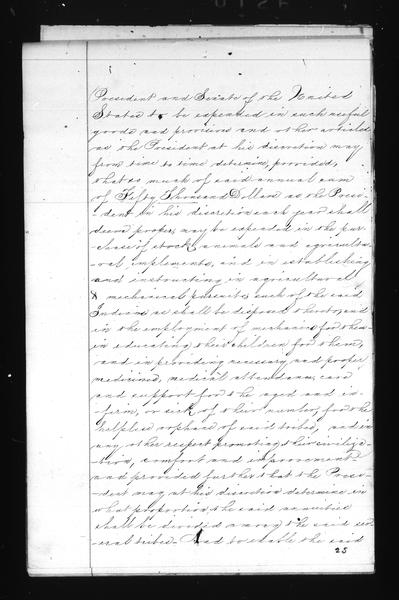 President and Senate of the United
States to be expended in such useful
goods and provisions and other articles
as the President at his discretion may
from time to time determine, provided,
that so much of said annual sum
of Fifty Thousand Dollars as the Presi-
dent in his discretion each year shall
deem proper, may be expended in the pur-
chase of stock, animals and agricultu-
-ral implements, and in establishing
and instructing in agricultural
& mechanical pursuits such of the said
Indians as shall be disposed thereto; and
in the employment of mechanics for them
in educating their children for them,
and in providing necessary and proper
medicines, medical attendance, care
and support for the aged and in-
-firm, or sick of their number, for the
helpless orphans of said tribes, and in
any other respect promoting their civiliza-
-tion, comfort and improvement
and provided further that the Presi-
-dent may at his discretion determine in
what proportion the said annuities
shall be divided among the said sev-
-eral tribes. And to enable the said
25